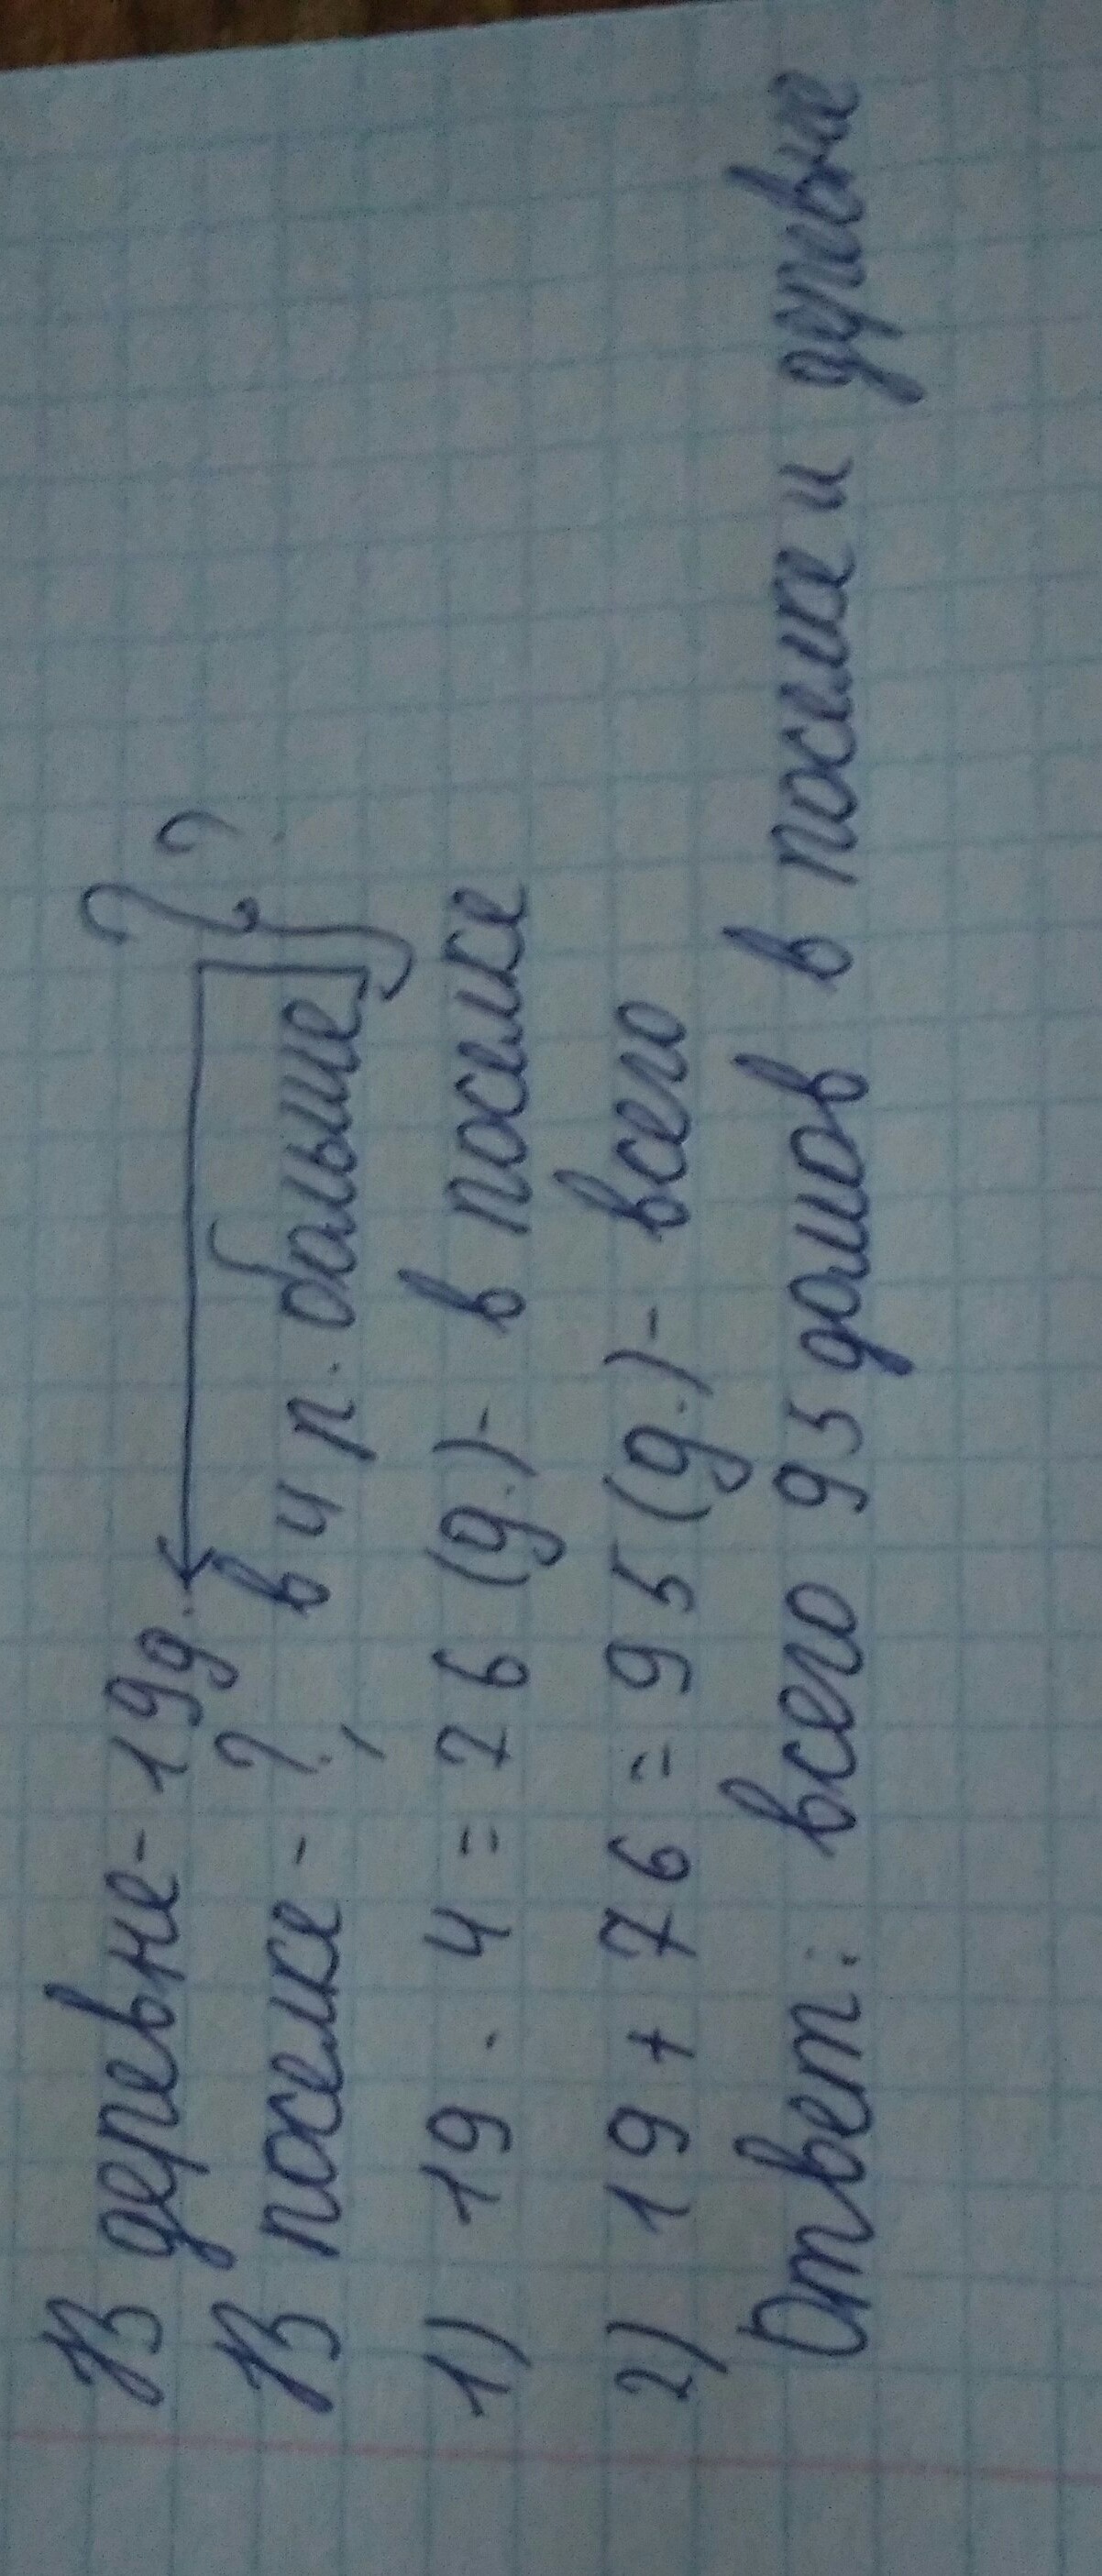 В деревне - 19д.
В поселке - ?, в 4 р. больше } ?
1) 19 · 4 = 76 (д.) - в поселке
2) 19 + 76 = 95 (д.) - всего
Ответ: всего 95 домов в поселке и деревне